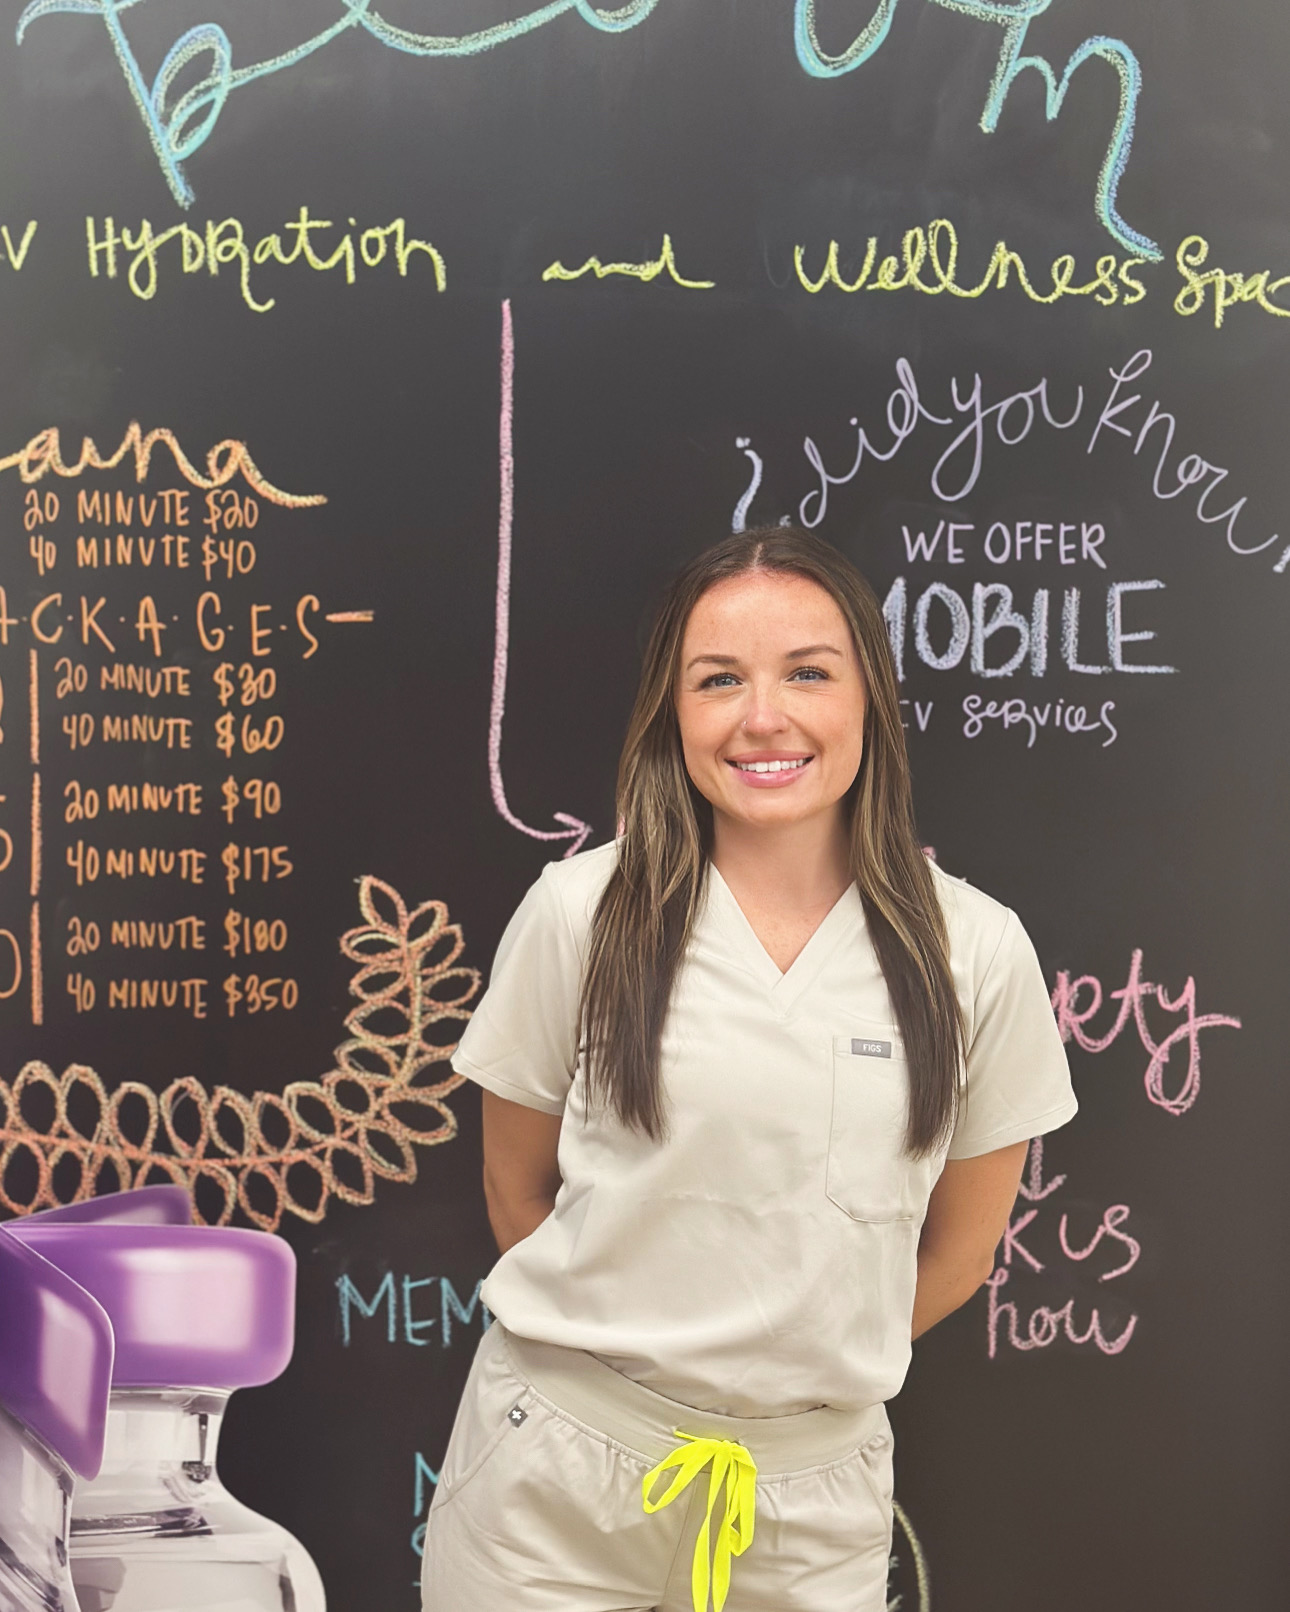 V Hydration and Wellness Spa
auna
20 MINUTE $20
40 MINUTE $40
A·C·K·A·G·E·S-
20 MINUTE $30
40 MINUTE $60
20 MINUTE $90
40 MINUTE $175
20 MINUTE $180
40 MINUTE $350
¿did you know
WE OFFER
MOBILE
IV services
FIGS
rty
K US
how
MEM